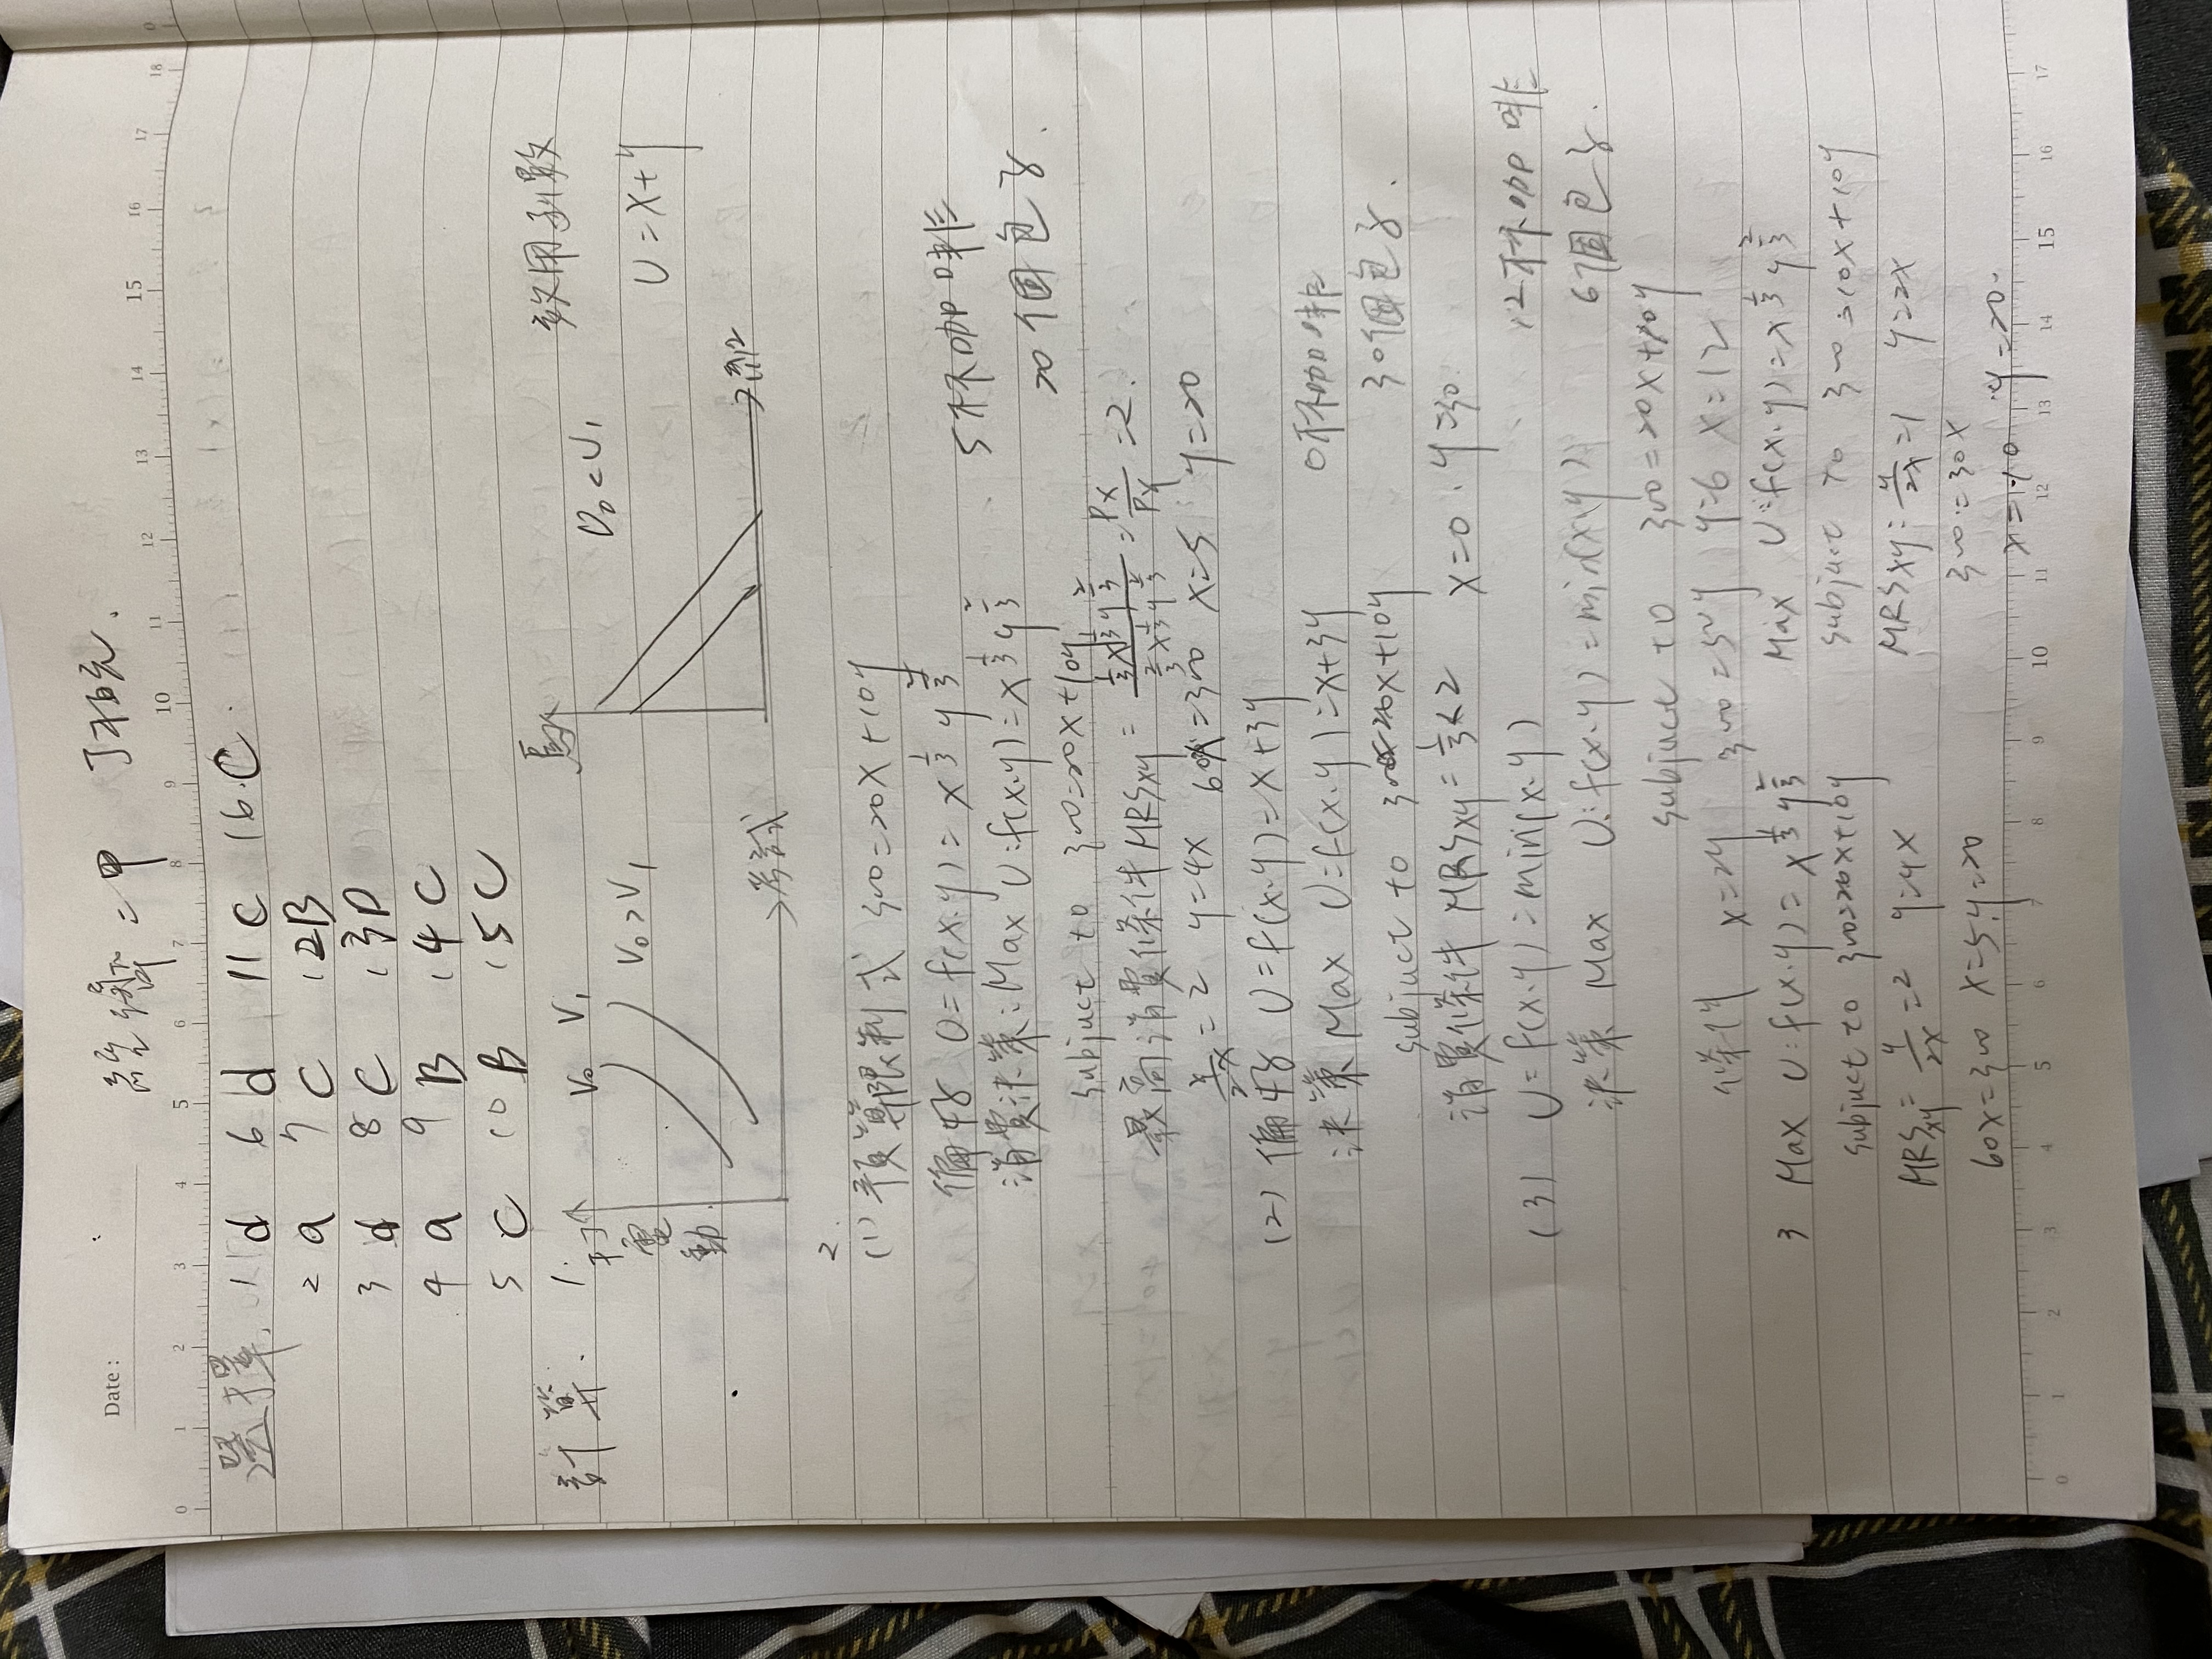 Date :
經濟二甲 丁柏元.
0 1 2 3 4 5 6 7 8 9 10 11 12 13 14 15 16 17 18
選擇. 1 d 6 d 11 C 16. C
2 a 7 C 12 B
3 d 8 C 13 D
4 a 9 B 14 C
5 C 10 B 15 C
計算. 1.
打電動
V₀ V₁
V₀ > V₁
考試
U₀ < U₁
效用函數
U = x + y
2.
(1) 預算限制式 300 = 20x + 10y
偏好 U = f(x.y) = x^{1/3} y^{2/3}
消費決策: Max U: f(x.y) = x^{1/3} y^{2/3}
5杯咖啡
20個包子.
subjuct to 300 = 20x + 10y
最高消費條件 MRSxy = = Px/Py = 2.
y/2x = 2 y = 4x 60x = 300 x = 5 y = 20
(2) 偏好 U = f(x.y) = x + 3y
決策 Max U = f(x.y) = x + 3y
0杯咖啡
30個包子.
subjuct to 300 = 20x + 10y
消費條件 MRSxy = 1/3 < 2 x = 0 . y = 30
(3) U = f(x.y) = min(x.y)
12杯咖啡
6個包子.
決策 Max U: f(x.y) = min(x.y)
subjuct to 300 = 20x + 10y
條件 x = 2y 300 = 50y y = 6 x = 12
3 Max U: f(x.y) = x^{1/3} y^{2/3}
subjuct to 300 = 20x + 10y
MRSxy = y/2x = 2 y = 4x
60x = 300 x = 5. y = 20
Max U: f(x.y) = x^{1/3} y^{2/3}
subjuct to 300 = 10x + 10y
MRSxy = y/2x = 1 y = 2x
300 = 30x
x = 10 y = 20.
0 1 2 3 4 5 6 7 8 9 10 11 12 13 14 15 16 17